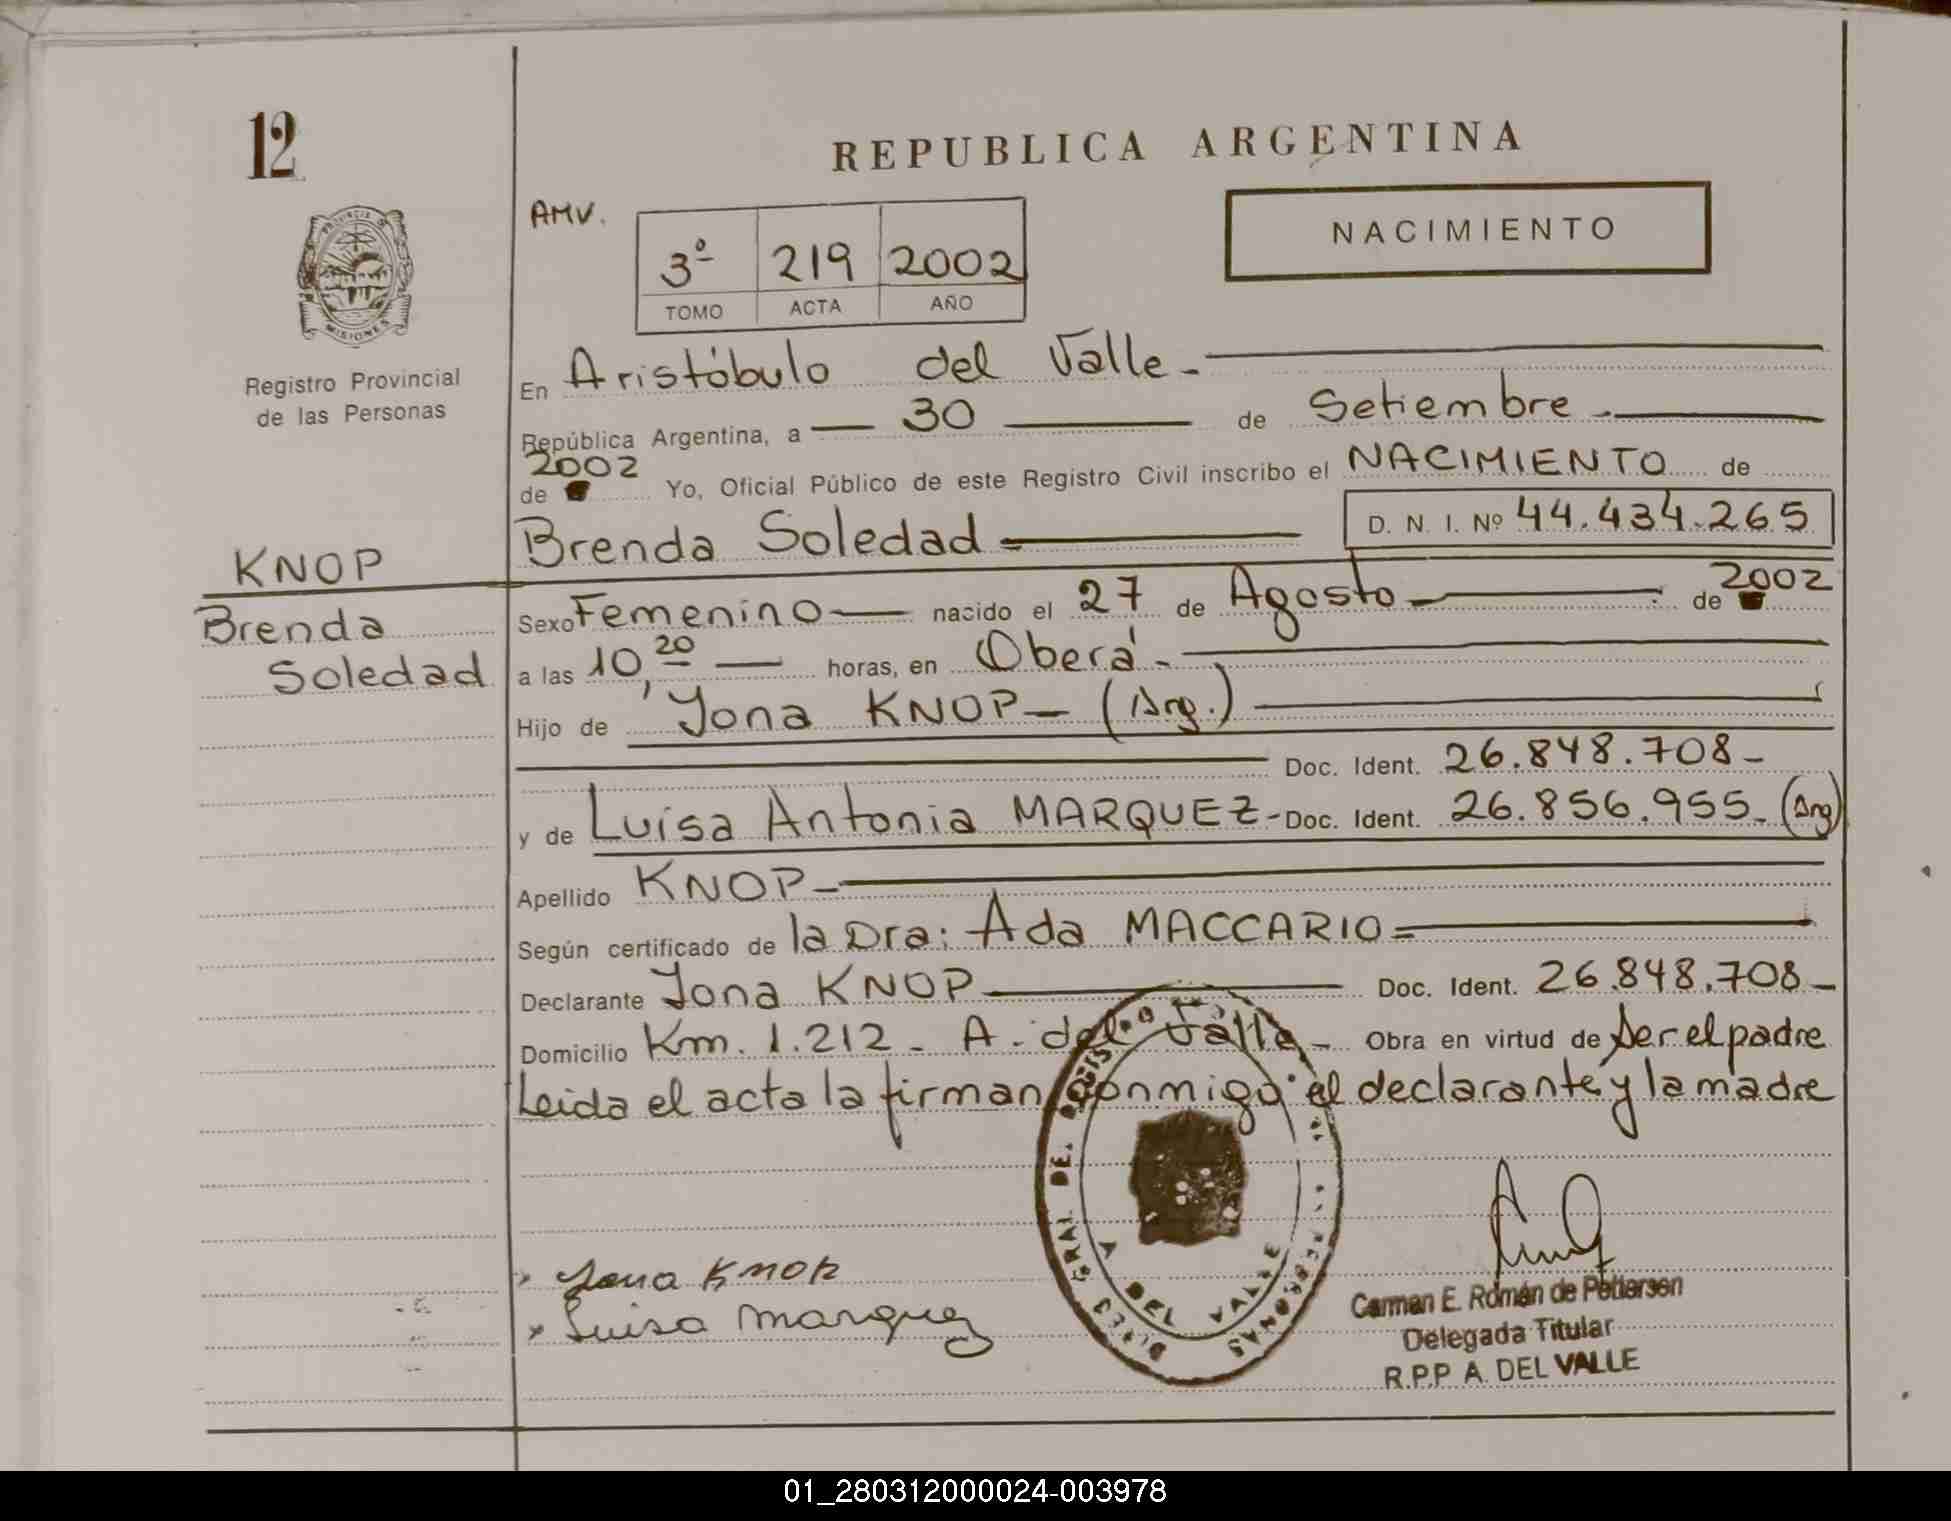 12
REPUBLICA ARGENTINA
AMV.
3º 219 2002
TOMO ACTA AÑO
NACIMIENTO
PROVINCIA DE
MISIONES
Registro Provincial
de las Personas
En Aristóbulo del Valle -
República Argentina, a — 30 — de Setiembre -
2002
de Yo, Oficial Público de este Registro Civil inscribo el NACIMIENTO de
Brenda Soledad = D. N. I. Nº 44.434.265
KNOP
Brenda
Soledad
Sexo Femenino — nacido el 27 de Agosto — de 2002
a las 10,20 — horas, en Oberá -
Hijo de Jona KNOP — (Arg.)
Doc. Ident. 26.848.708 -
y de Luisa Antonia MARQUEZ - Doc. Ident. 26.856.955 - (Arg)
Apellido KNOP -
Según certificado de la Dra: Ada MACCARIO =
Declarante Jona KNOP — Doc. Ident. 26.848.708 -
Domicilio Km. 1.212 - A. del Valle - Obra en virtud de ser el padre
Leida el acta la firman conmigo el declarante y la madre
Jona Knop
Luisa Marquez
A DEL VALLE
Carmen E. Román de Petterson
Delegada Titular
R.P.P A. DEL VALLE
01_280312000024-003978